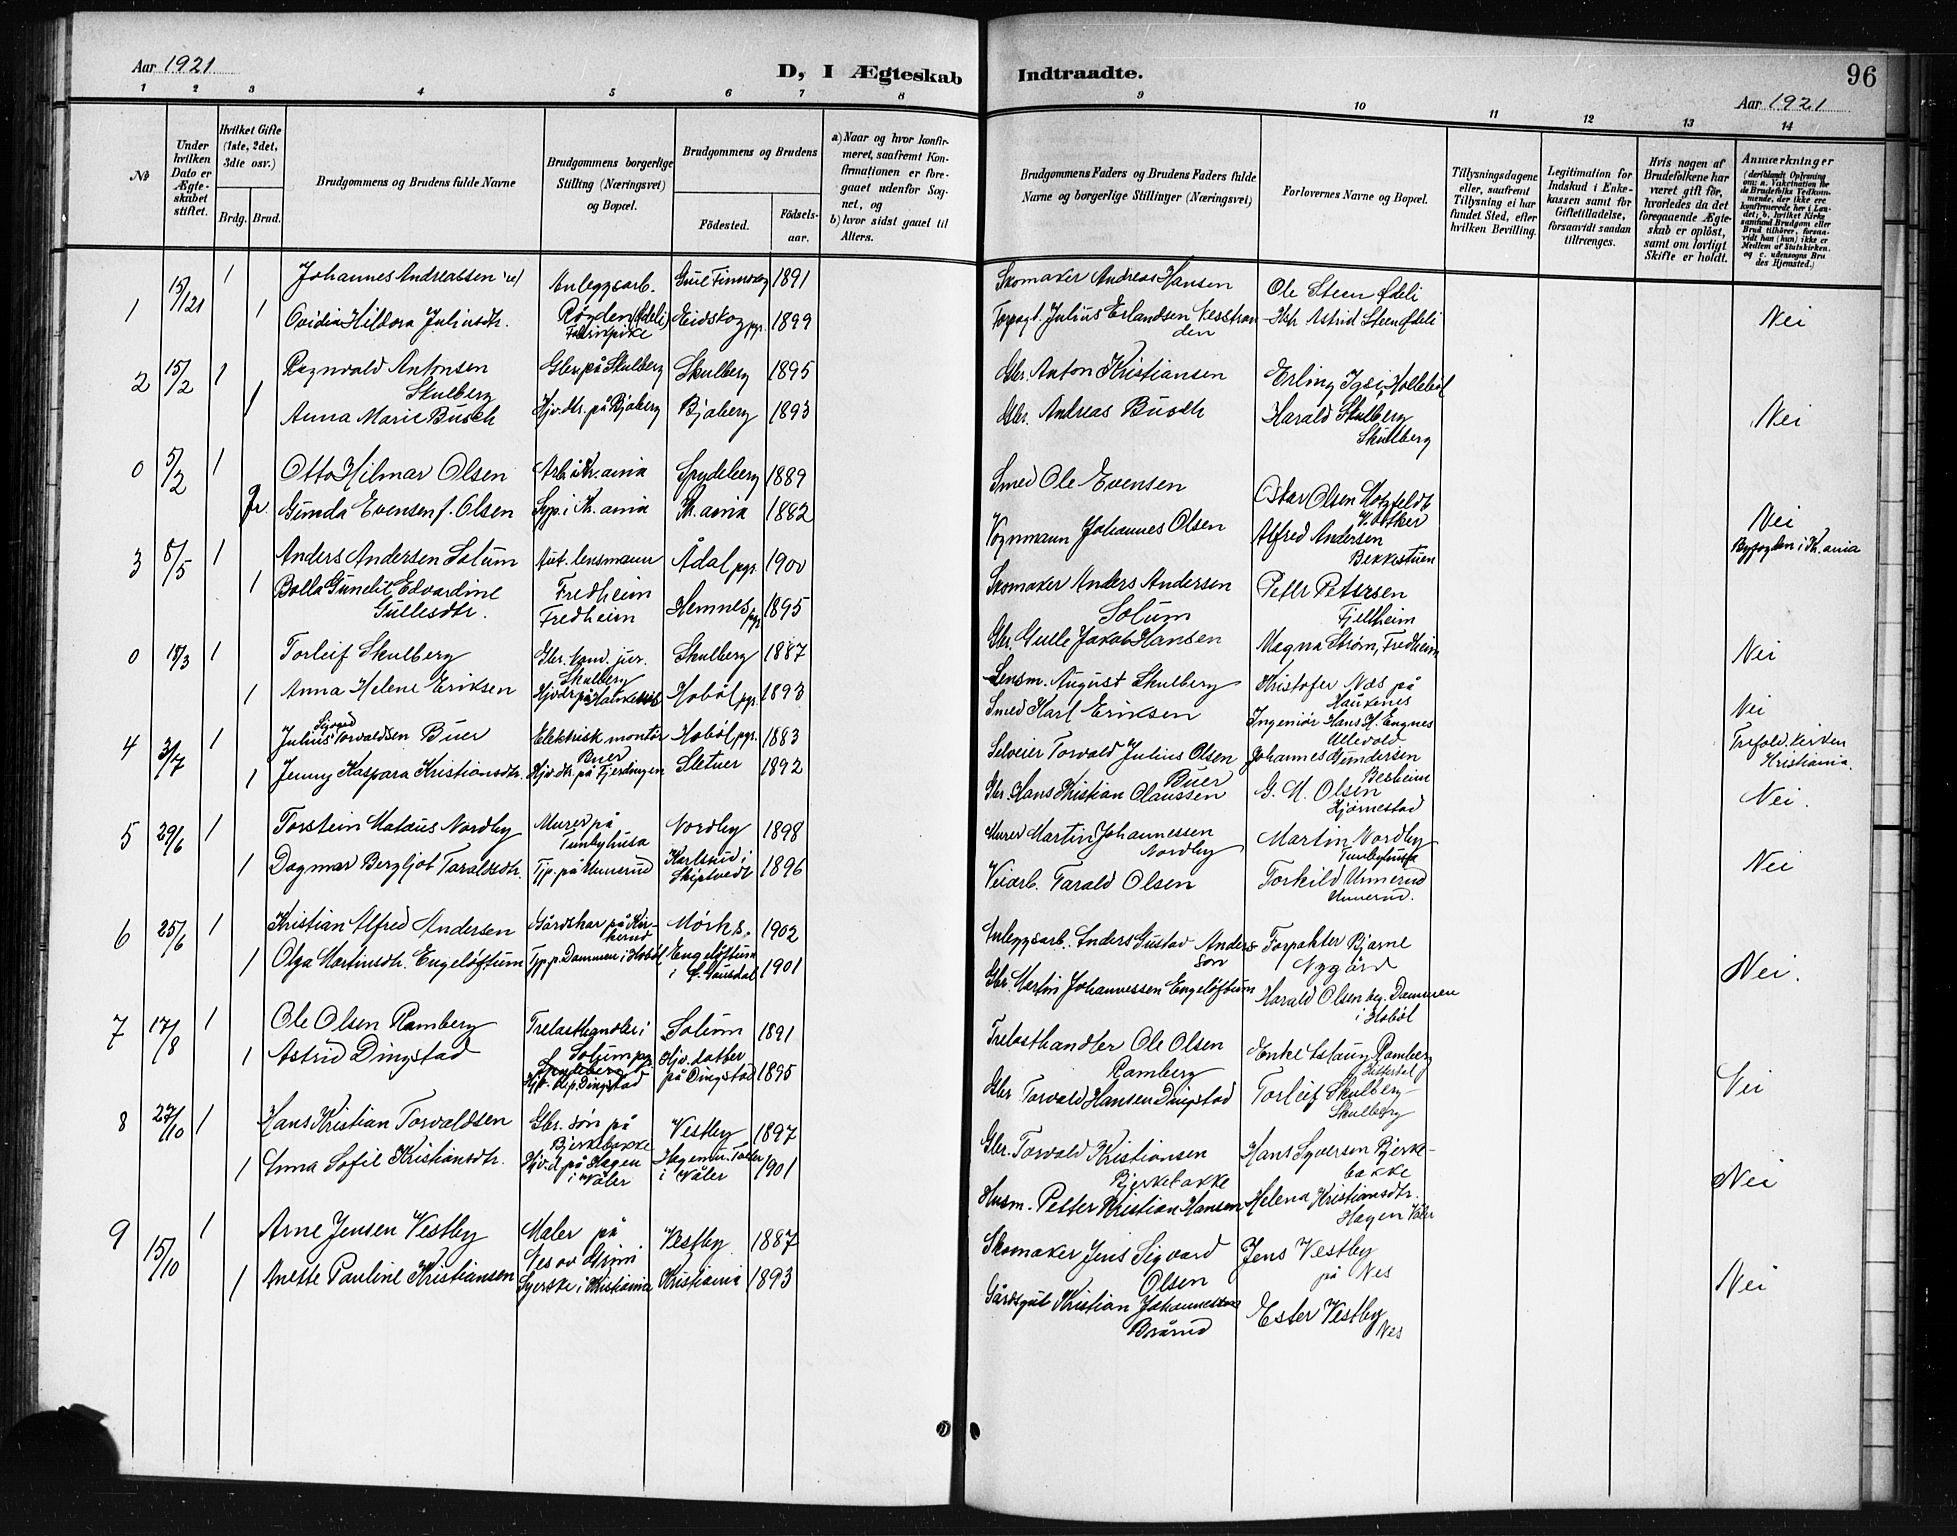 Aar 1921
D, I Ægteskab Indtraadte.
96
Aar 1921
1 2 3 4 5 6 7 8 9 10 11 12 13 14
No
Under hvilken Dato er Ægteskabet stiftet.
Hvilket Gifte (1ste, 2det, 3die osv.)
Brdg. Brud.
Brudgommens og Brudens fulde Navne
Brudgommens borgerlige Stilling (Næringsvei) og Bopæl.
Brudgommens og Brudens
Fødested.
Fødselsaar.
a) Naar og hvor konfirmeret, saafremt Konfirmationen er foregaaet udenfor Sognet, og
b) hvor sidst gaaet til Alters.
Brudgommens Faders og Brudens Faders fulde Navne og borgerlige Stillinger (Næringsvei)
Forlovernes Navne og Bopæl.
Tillysningsdagene eller, saafremt Tillysning ei har fundet Sted, efter hvilken Bevilling.
Legitimation for Indskud i Enkekassen samt for Giftetilladelse, forsaavidt saadan tiltrænges.
Hvis nogen af Brudefolkene har været gift før, hvorledes da det foregaaende Ægteskab er opløst, samt om lovligt Skifte er holdt.
Anmærkninger
1 15/1 21 1 Johannes Andreassen Anleggsarb. 1891 Skomaker Andreas Hansen Ole Steen Ødeli
1 Ovidia Hildora Juliusdtr. Røyden (Ødeli) Fabrikpike Eidskog pgr. 1899 Forpagt. Julius Erlandsen Nesstranden Astrid Steen Ødeli Nei
2 15/2 1 Ragnvald Antonsen Skulberg Gbr. på Skulberg Skulberg 1895 Gbr. Anton Kristiansen Erling Hollebøl
1 Anna Marie Busch Hjv. dtr. på Bjaberg Bjaberg 1893 Gbr. Andreas Busch Harald Skulberg Skulberg Nei
0 5/2 1 Otto Hilmar Olsen Arb. i Kr.ania Spydeberg 1889 Smed Ole Evensen Oskar Olsen
Gunda Evensen f. Olsen Syp. i Kr.ania Kr.ania 1882 Vognmann Johannes Olsen Alfred Andersen Bekkestuen Nei Byfogden i Kr.ania
3 8/5 1 Anders Andersen Solum Aut. lensmann Fredheim Ådal pgr. 1900 Skomaker Anders Andersen Solum Petter Petersen Fjellheim
1 Bolla Gunelie Edvardine Gullesdtr. Fredheim Hemnes pgr. 1895 Gbr. Gulle Jakob Hansen Magna Strøm, Fredheim Nei
0 18/3 1 Torleif Skulberg Gbr. kand. jur. Skulberg Skulberg 1887 Lensm. August Skulberg Kristofer Næs på Haukenes
1 Anna Helene Eriksen Hobøl pgr. 1893 Smed Karl Eriksen Ingeniør Hans H. Engnes Ullevold Nei Trefold. kirken Kristiania.
4 3/7 1 Julius Sigvard Torvaldsen Buer Elektrisk montør Buer Hobøl pgr. 1883 Selveier Torvald Julius Olsen Buer Johannes Gundersen Besheim
1 Jenny Kaspara Kristiansdtr. Hjv. dtr. på Fjerdingen Sletner 1892 Gbr. Hans Kristian Olaussen G. M. Olsen Hjørnestad Nei.
5 29/6 1 Torstein Mataus Nordby Murer på Tunbyhusa Nordby 1898 Murer Martin Johannessen Nordby Martin Nordby Tunbyhusa
1 Dagmar Bergljot Taraldsdtr. Tjp. på Unnerud Karlsrud i Skiptvedt 1896 Veiarb. Tarald Olsen Torkild Unnerud Unnerud. Nei
6 25/6 1 Kristian Alfred Andersen Gårdskar på Kirkerud Mørk s. 1902 Anleggsarb. Anders Gustav Andersson Forpakter Bjarne Nygård
1 Olga Martinsdtr. Engeløftum Tjp. p. Dammen i Hobøl Engeløftum i Ø. Gausdal 1901 Gbr. Martin Johannessen Engeløftum Harald Olsen bg. Dammen i Hobøl Nei.
7 17/8 1 Ole Olsen Ramberg Trelasthandler i Solum pg. Solum 1891 Trelasthandler Ole Olsen Ramberg Enke Aslaug Ramberg Hitterdal
1 Astrid Dingstad Spydeberg Hjv. d. p. Dingstad Hjv. datter på Dingstad 1895 Gbr Torvald Hansen Dingstad Torleif Skulberg Skulberg Nei
8 27/10 1 Hans Kristian Torvaldsen Gbr. søn på Bjerkebakke Vestby 1897 Gbr. Torvald Kristiansen Bjerkebakke Hans Syversen Bjerkebakke
1 Anna Sofie Kristiansdtr. Hjv. d. på Hagen i Våler Hagen u. i Våler 1901 Husm. Petter Kristian Hansen Helena Kristiansdtr. Hagen Våler Nei
9 15/10 1 Arne Jensen Vestby Maler på Nes Vestby 1887 Skomaker Jens Sigvard Olsen Jens Vestby på Nes
1 Anette Pauline Kristiansen Syerske i Kristiania Kristiania 1893 Gårdsgut Kristian Johannessen Brårud Ester Vestby Nes Nei